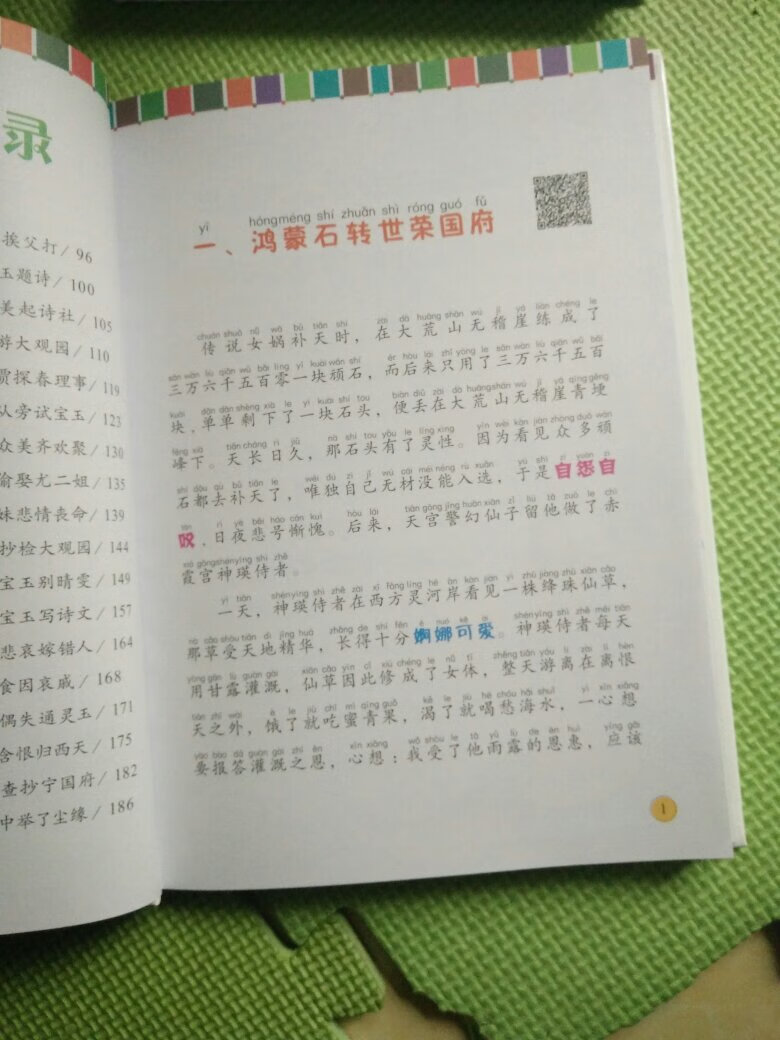 录
挨父打/ 96
玉题诗/ 100
美起诗社/ 105
游大观园/ 110
贾探春理事/ 119
从旁试宝玉/ 123
众美齐欢聚/ 130
偷娶尤二姐/ 135
妹悲情丧命/ 139
抄检大观园/ 144
宝玉别晴雯/ 149
宝玉写诗文/ 157
悲哀嫁错人/ 164
食因哀戚/ 168
偶失通灵玉/ 171
含恨归西天/ 175
查抄宁国府/ 182
中举了尘缘/ 186
yī hóngméng shí zhuǎn shì róng guó fǔ
一、鸿蒙石转世荣国府
传说女娲补天时，在大荒山无稽崖练成了
三万六千五百零一块顽石，而后来只用了三万六千五百
块，单单剩下了一块石头，便丢在大荒山无稽崖青埂
峰下。天长日久，那石头有了灵性。因为看见众多顽
石都去补天了，唯独自己无材没能入选，于是自怨自
叹，日夜悲号惭愧。后来，天宫警幻仙子留他做了赤
霞宫神瑛侍者。
一天，神瑛侍者在西方灵河岸看见一株绛珠仙草，
那草受天地精华，长得十分婀娜可爱。神瑛侍者每天
用甘露灌溉，仙草因此修成了女体，整天游离在离恨
天之外，饿了就吃蜜青果，渴了就喝愁海水，一心想
要报答灌溉之恩，心想：我受了他雨露的恩惠，应该
1